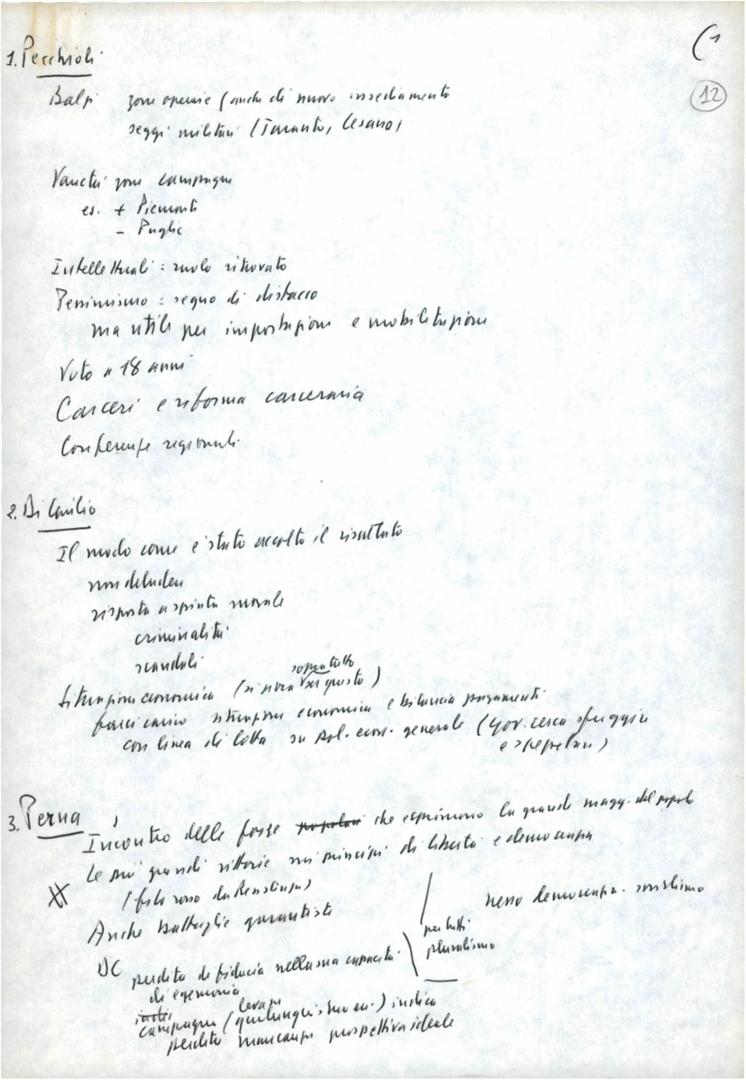 1. Pecchioli
12
Balzi zone operaie (anche di nuovo insediamento
seggi militari (Taranto, Cesano)
Varietà zone campagne
es. + Piemonte
- Puglie
Intellettuali: ruolo ritrovato
Pessimismo: segno di distacco
ma utile per impostazione e mobilitazione
Voto a 18 anni
Carceri e riforma carceraria
Conferenze regionali
2. Di Giulio
Il modo come è stato accolto il risultato
non deludere
risposta a spinta morale
criminalità
scandali
soprattutto
Situazione economica (si gioca su questo)
farci carico situazione economica e bilancia pagamenti
con linea di lotta su pol. econ. generale (gov. cerca sfuggire
3. Perna
Incontro delle forze che esprimono la grande magg. del popolo
Le più grandi vittorie sui principi di libertà e democrazia
(filo rosso da Resistenza)
Anche battaglie garantiste
nesso democrazia-socialismo
per tutti
pluralismo
DC perdita di fiducia nella sua capacità
di egemonia
campagna (qualunquismo ecc.) indica
perdita mancanza prospettiva ideale